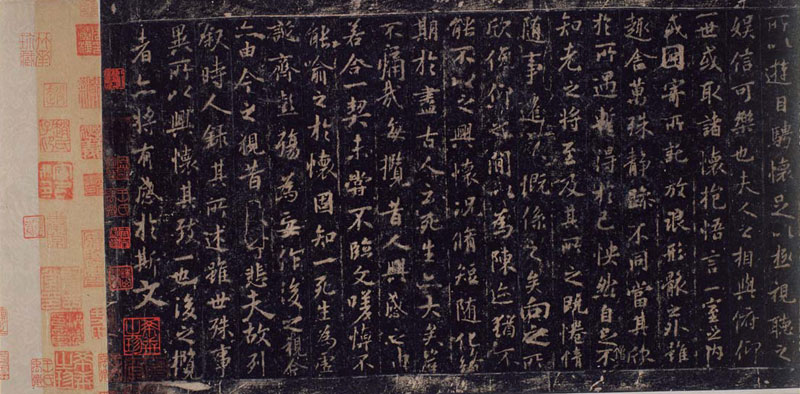 所以遊目騁懷足以極視聽之
娛信可樂也夫人之相與俯仰
一世或取諸懷抱悟言一室之內
或因寄所託放浪形骸之外雖
趣舍萬殊靜躁不同當其欣
於所遇暫得於己怏然自足不
知老之將至及其所之既惓情
隨事遷感慨係之矣向之所
欣俛仰之間以為陳迹猶不
能不以之興懷況脩短隨化終
期於盡古人云死生亦大矣豈
不痛哉每攬昔人興感之由
若合一契未嘗不臨文嗟悼不
能喻之於懷固知一死生為虛
誕齊彭殤為妄作後之視今
亦由今之視昔悲夫故列
敘時人錄其所述雖世殊事
異所以興懷其致一也後之攬
者亦將有感於斯文